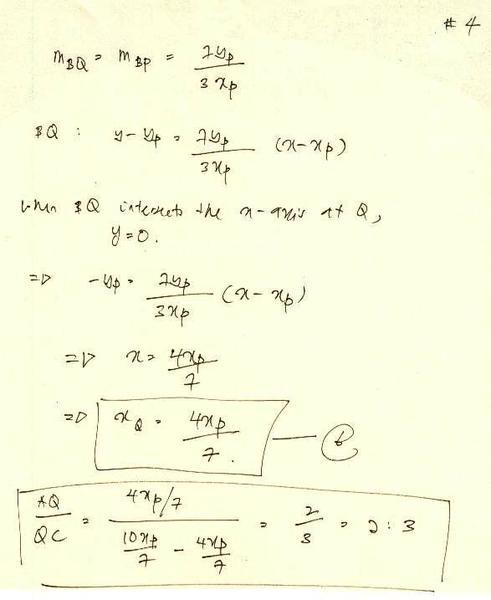 # 4
m_BQ = m_BP = 7y_p / 3x_p
BQ : y - y_p = 7y_p / 3x_p (x - x_p)
when BQ intersects the x-axis at Q,
y = 0.
=> -y_p = 7y_p / 3x_p (x - x_p)
=> x = 4x_p / 7
=> x_Q = 4x_p / 7 .
AQ / QC = (4x_p/7) / (10x_p/7 - 4x_p/7) = 2/3 = 2 : 3